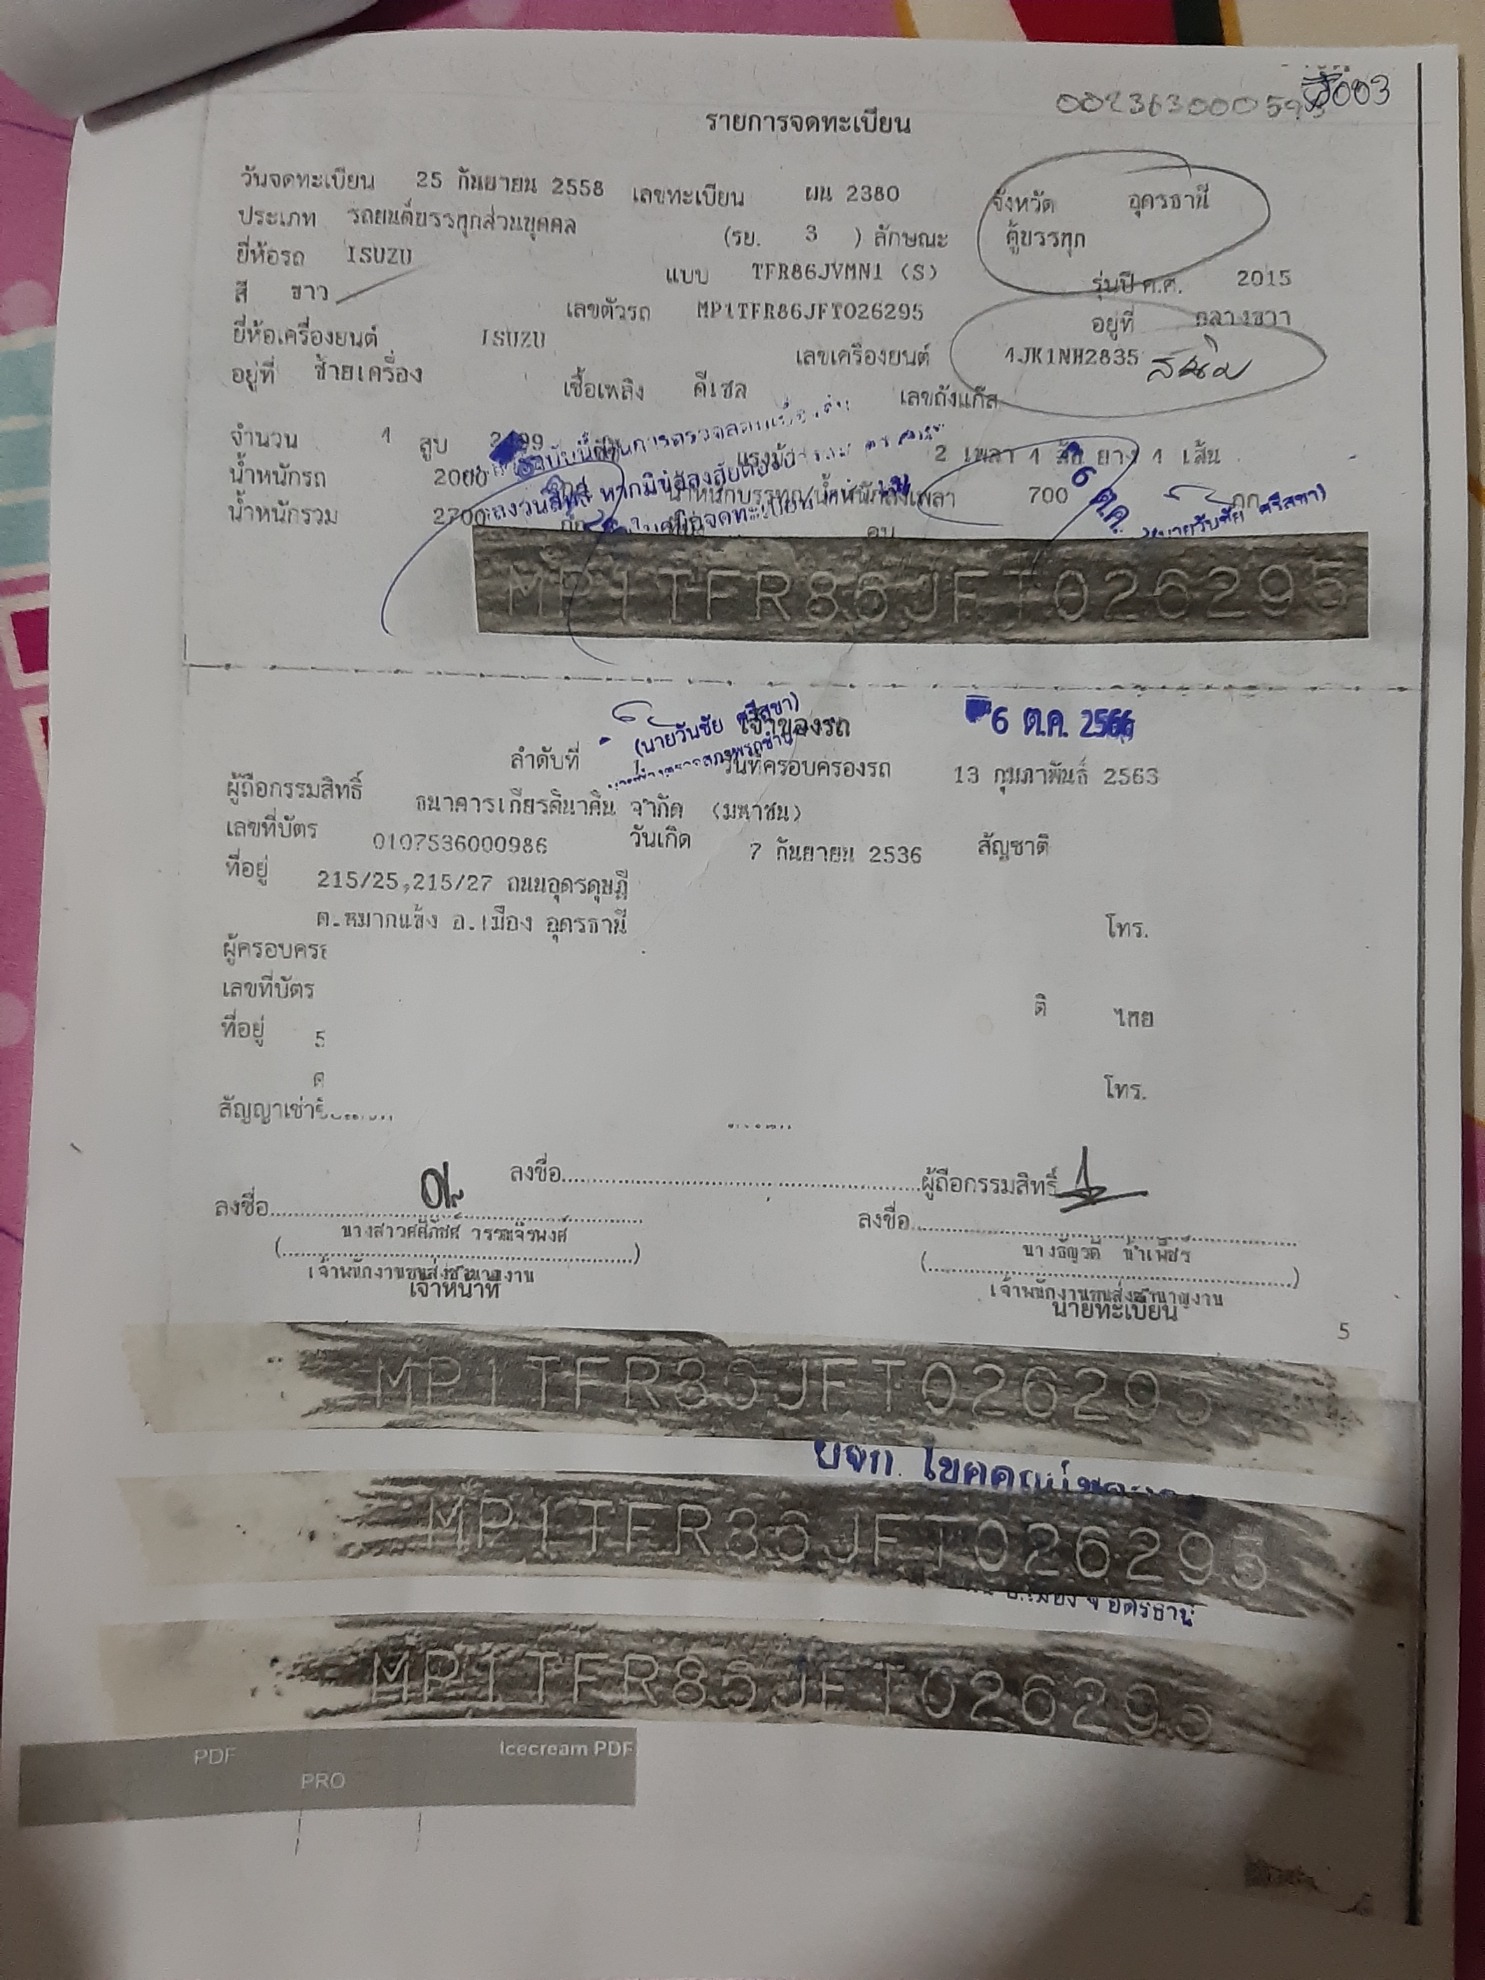 002363000595 003
รายการจดทะเบียน
วันจดทะเบียน 25 กันยายน 2558 เลขทะเบียน ผน 2380 จังหวัด อุดรธานี
ประเภท รถยนต์บรรทุกส่วนบุคคล (รย. 3 ) ลักษณะ ตู้บรรทุก
ยี่ห้อรถ ISUZU แบบ TFR86JVMN1 (S) รุ่นปี ค.ศ. 2015
สี ขาว เลขตัวรถ MP1TFR86JFT026295 อยู่ที่ กลางขวา
ยี่ห้อเครื่องยนต์ ISUZU เลขเครื่องยนต์ 4JK1NH2835 สนิม
อยู่ที่ ซ้ายเครื่อง เชื้อเพลิง ดีเซล เลขถังแก๊ส
จำนวน 4 สูบ แรงม้า 2 เพลา 4 ล้อ ยาง 4 เส้น
น้ำหนักรถ 2000 น้ำหนักบรรทุก/น้ำหนักลงเพลา 700 กก.
น้ำหนักรวม 2700 กก.
6 ต.ค.
(นายวันชัย ศรีสุขา)
MP1TFR86JFT026295
(นายวันชัย ศรีสุขา)
เจ้าของรถ
6 ต.ค. 2566
ลำดับที่ 1 วันที่ครอบครองรถ 13 กุมภาพันธ์ 2563
ผู้ถือกรรมสิทธิ์ ธนาคารเกียรตินาคิน จำกัด (มหาชน)
เลขที่บัตร 0107536000986 วันเกิด 7 กันยายน 2536 สัญชาติ
ที่อยู่ 215/25,215/27 ถนนอุดรดุษฎี
ต.หมากแข้ง อ.เมือง อุดรธานี โทร.
ผู้ครอบคร
เลขที่บัตร ติ ไทย
ที่อยู่ 5
ต โทร.
สัญญาเช่า
ลงชื่อ ผู้ถือกรรมสิทธิ์
ลงชื่อ ลงชื่อ
เจ้าพนักงานขนส่งชำนาญงาน เจ้าพนักงานขนส่งชำนาญงาน
เจ้าหน้าที่ นายทะเบียน
5
MP1TFR86JFT026295
MP1TFR86JFT026295
อ.เมือง จ.อุดรธานี
MP1TFR86JFT026295
PDF Icecream PDF
PRO